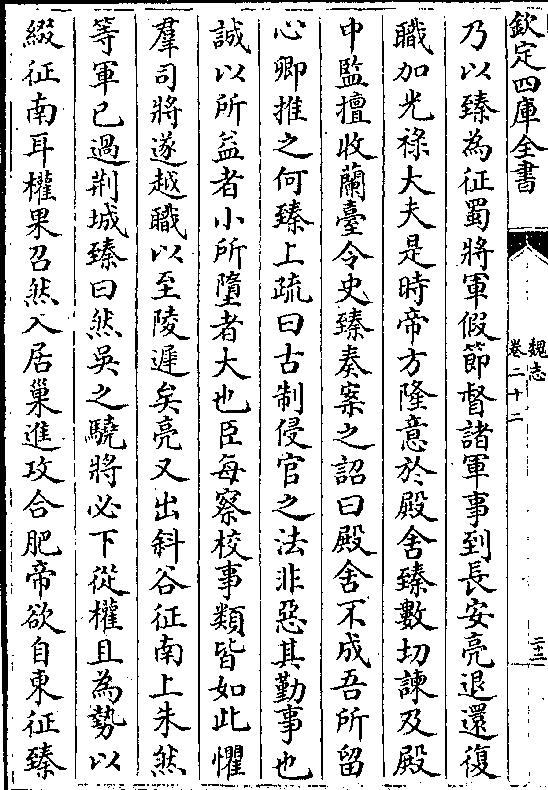 欽定四庫全書
魏志
卷二十二
二十三
乃以臻為征蜀將軍假節督諸軍事到長安亮退還復
職加光祿大夫是時帝方隆意於殿舍臻數切諫及殿
中監擅收蘭臺令史臻奏案之詔曰殿舍不成吾所留
心卿推之何臻上疏曰古制侵官之法非惡其勤事也
誠以所益者小所墮者大也臣每察校事類皆如此懼
羣司將遂越職以至陵遲矣亮又出斜谷征南上朱然
等軍已過荆城臻曰然吳之驍將必下從權且為勢以
綴征南耳權果召然入居巢進攻合肥帝欲自東征臻